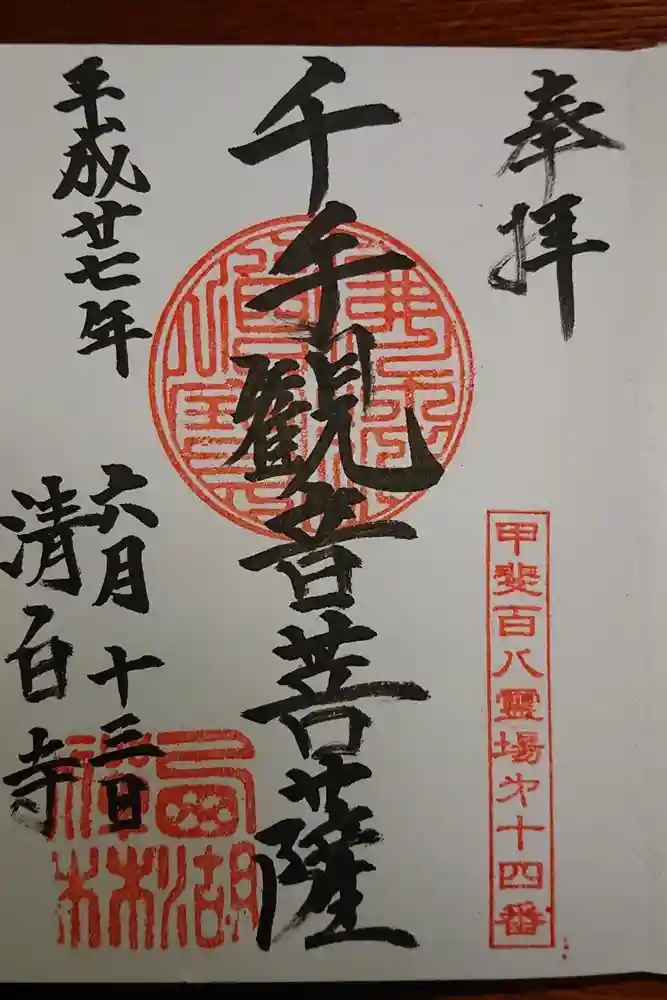 奉拝
甲斐百八霊場第十四番
千手観音菩薩
平成廿七年
六月十三日
清白寺